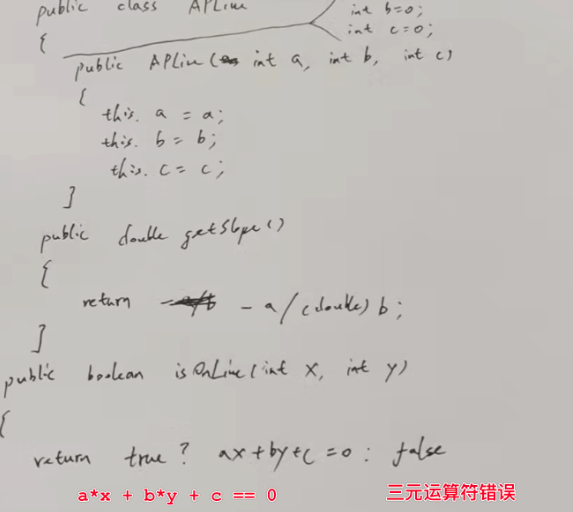 public class APLine
int b=0;
int c=0;
{
public APLine( int a, int b, int c)
{
this. a = a;
this. b = b;
this. c = c;
}
public double getSlope()
{
return - a/(double) b;
}
public boolean isOnLine(int x, int y)
{
return true? ax+by+c =0: false
a*x + b*y + c == 0
三元运算符错误